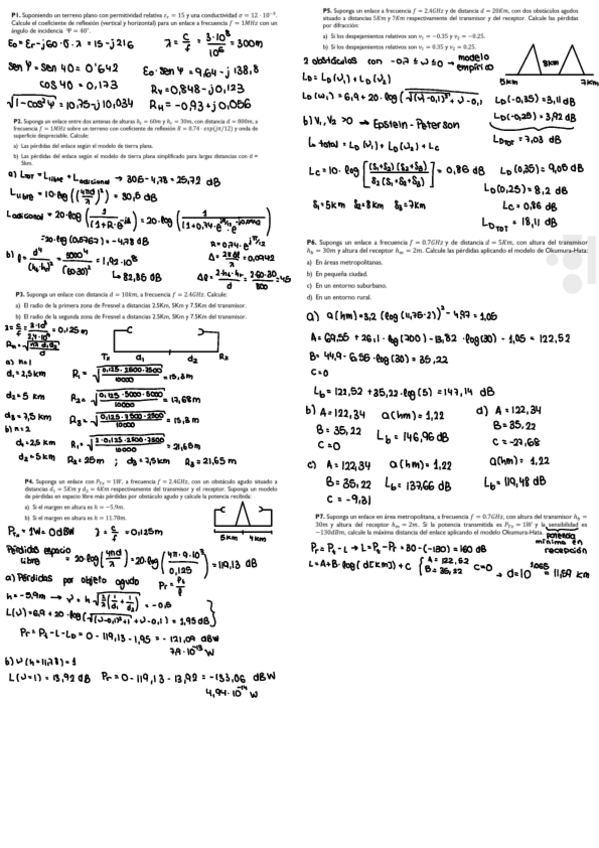 P1. Suponiendo un terreno plano con permitividad relativa εr = 15 y una conductividad σ = 12 · 10⁻³.
Calcule el coeficiente de reflexión (vertical y horizontal) para un enlace a frecuencia f = 1MHz con un
ángulo de incidencia Ψ = 40°.
ε₀ = εr - j60·σ·λ = 15 - j216
λ = c/f = 3·10⁸/10⁶ = 300m
sen Ψ = sen 40 = 0'642
cos 40 = 0,173
ε₀·sen Ψ = 9,64 - j 138,8
RV = 0,848 - j0,123
RH = -0,93 + j0,056
P2. Suponga un enlace entre dos antenas de alturas h₁ = 60m y h₂ = 30m, con distancia d = 800m, a
frecuencia f = 1MHz sobre un terreno con coeficiente de reflexión R = 0.74 · exp(jπ/12) y onda de
superficie despreciable. Calcule:
a) Las pérdidas del enlace según el modelo de tierra plana.
b) Las pérdidas del enlace según el modelo de tierra plana simplificado para largas distancias con d =
5km.
a) LTOT = LLIBRE + Ladicional → 30,5 - 4,78 = 25,72 dB
Llibre = 10·log((4πd/λ)²) = 30,5 dB
= 20·log(0,5762) = -4,78 dB
R = 0,74·e^(jπ/12)
↳ 82,86 dB
P3. Suponga un enlace con distancia d = 10km, a frecuencia f = 2.4GHz. Calcule:
a) El radio de la primera zona de Fresnel a distancias 2.5Km, 5Km y 7.5Km del transmisor.
b) El radio de la segunda zona de Fresnel a distancias 2.5Km, 5Km y 7.5Km del transmisor.
a) n=1
d₁ = 2,5 km R₁ = √(0,125·2500·7500/10000) = 15,3 m
d₂ = 5 km R₂ = √(0,125·5000·5000/10000) = 17,68 m
d₃ = 7,5 km R₃ = √(0,125·7500·2500/10000) = 15,3 m
b) n=2
d₁ = 2,5 km R₁ = √(2·0,125·2500·7500/10000) = 21,65 m
d₂ = 5 km R₂ = 25m ; d₃ = 7,5 km R₃ = 21,65 m
P4. Suponga un enlace con PTx = 1W, a frecuencia f = 2.4GHz, con un obstáculo agudo situado a
distancias d₁ = 5Km y d₂ = 4Km respectivamente del transmisor y el receptor. Suponga un modelo
de pérdidas en espacio libre más pérdidas por obstáculo agudo y calcule la potencia recibida:
a) Si el margen en altura es h = -5.9m.
b) Si el margen en altura es h = 11.78m.
PTx = 1W = 0dBW λ = c/f = 0,125m
5km 4km
Pérdidas espacio libre = 20·log(4πd/λ) = 20·log(4π·9·10³/0,125) = 119,13 dB
a) Pérdidas por objeto agudo
L(υ) = 6,9 + 20·log(√((υ-0,1)²+1) + υ - 0,1) = 1,95 dB
Pr = Pt - L - LD = 0 - 119,13 - 1,95 = -121,09 dBW
7,9·10⁻¹³ W
b) υ (h=11,78) = 1
L(υ=1) = 13,92 dB Pr = 0 - 119,13 - 13,92 = -133,06 dBW
4,94·10⁻¹⁴ W
P5. Suponga un enlace a frecuencia f = 2.4GHz y de distancia d = 20Km, con dos obstáculos agudos
situado a distancias 5Km y 7Km respectivamente del transmisor y del receptor. Calcule las pérdidas
por difracción:
a) Si los despejamientos relativos son v₁ = -0.35 y v₂ = -0.25.
b) Si los despejamientos relativos son v₁ = 0.35 y v₂ = 0.25.
2 obstáculos con -0,7 ≤ υ ≤ 0 → modelo empírico
5km 8km 7km
LD = LD(υ₁) + LD(υ₂)
LD(-0,35) = 3,11 dB
LD(-0,25) = 3,92 dB
LDTOT = 7,03 dB
b) V₁, V₂ > 0 → Epstein - Peterson
L total = LD(υ₁) + LD(υ₂) + LC
LC = 10·log[(S₁+S₂)(S₂+S₃)/S₂(S₁+S₂+S₃)] = 0,86 dB
LD(0,35) = 9,05 dB
LD(0,25) = 8,2 dB
LC = 0,86 dB
S₁ = 5km S₂ = 8km S₃ = 7km
LDTOT = 18,11 dB
P6. Suponga un enlace a frecuencia f = 0.7GHz y de distancia d = 5Km, con altura del transmisor
hb = 30m y altura del receptor hm = 2m. Calcule las pérdidas aplicando el modelo de Okumura-Hata:
a) En áreas metropolitanas.
b) En pequeña ciudad.
c) En un entorno suburbano.
d) En un entorno rural.
a) a(hm) = 3,2 (log(11,75·2))² - 4,97 = 1,05
A = 69,55 + 26,1·log(700) - 13,82·log(30) - 1,05 = 122,52
B = 44,9 - 6,55·log(30) = 35,22
C = 0
Lb = 122,52 + 35,22·log(5) = 147,14 dB
b) A = 122,34 a(hm) = 1,22
B = 35,22 Lb = 146,96 dB
C = 0
d) A = 122,34
B = 35,22
C = -27,68
a(hm) = 1,22
Lb = 119,48 dB
c) A = 122,34 a(hm) = 1,22
B = 35,22 Lb = 137,66 dB
C = -9,31
P7. Suponga un enlace en área metropolitana, a frecuencia f = 0.7GHz, con altura del transmisor hb =
30m y altura del receptor hm = 2m. Si la potencia transmitida es PTx = 1W y la sensibilidad es
-130dBm, calcule la máxima distancia del enlace aplicando el modelo Okumura-Hata.
potencia mínima en recepción
Pr = Pt - L → L = Pt - Pr = 30 - (-130) = 160 dB
L = A + B·log(d[km]) + C { A = 122,52 B = 35,22 C = 0 → d = 10^1,065 = 11,59 km